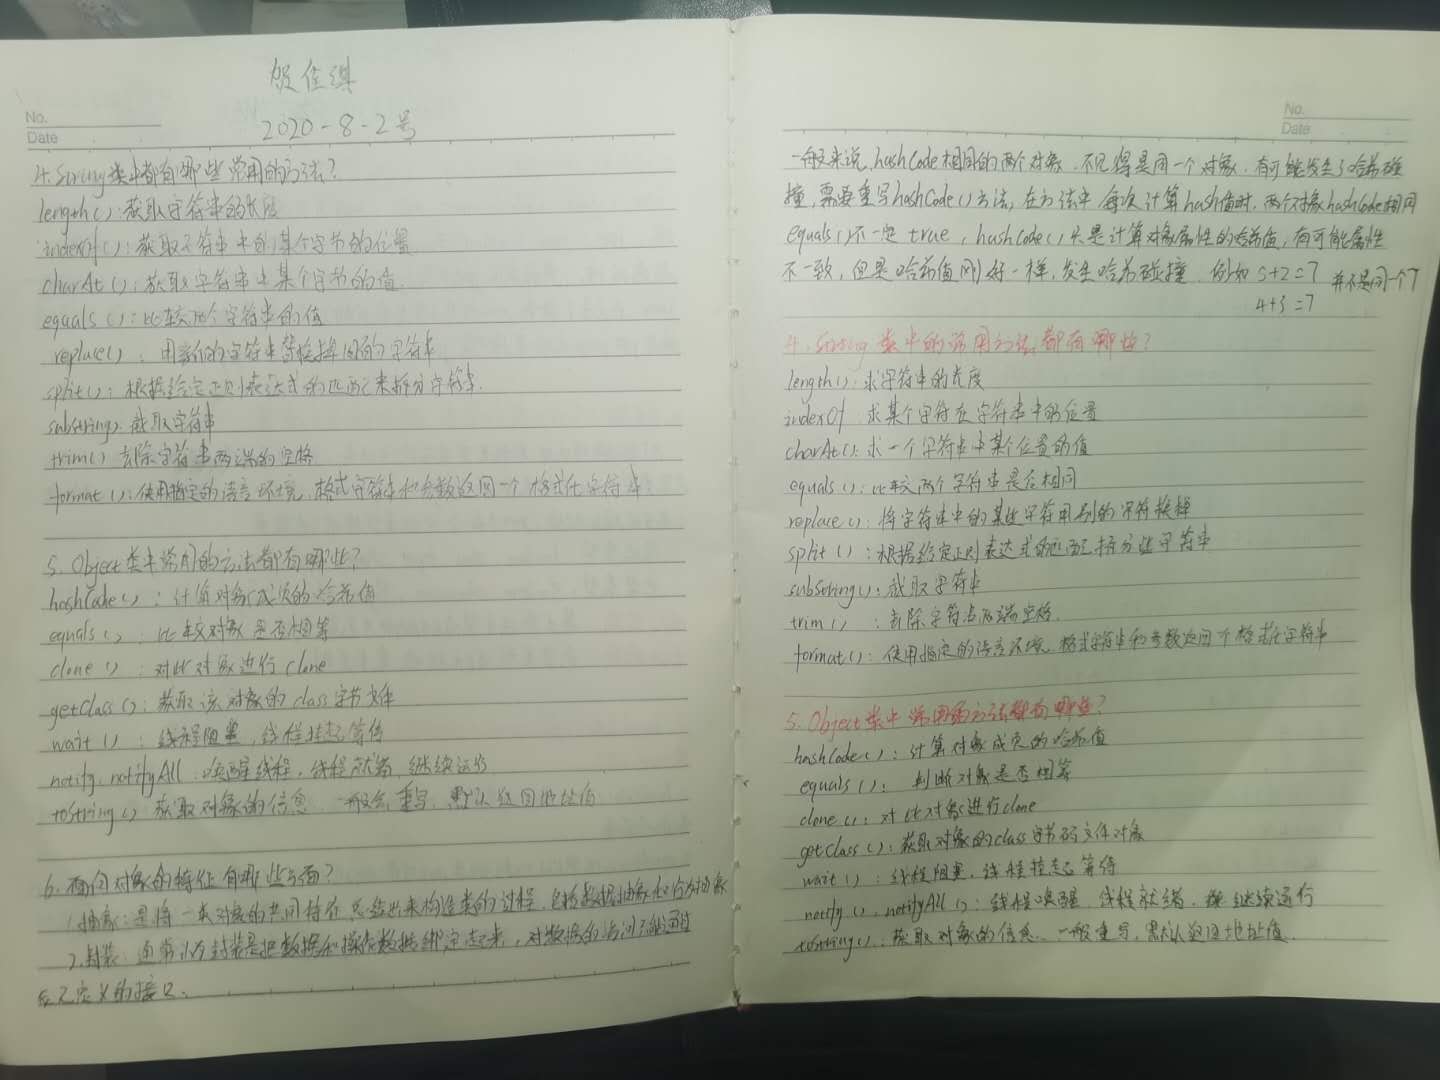 贺佳琪
No.
Date
2020-8-2号
4. String类中都有哪些常用的方法?
length(): 获取字符串的长度
indexOf(): 获取字符串中的某个字节的位置
charAt(): 获取字符串中某个字节的值
equals(): 比较两个字符串的值
replace(): 用新的字符串替换掉旧的字符串
split(): 根据给定正则表达式的匹配来拆分字符串.
substring: 截取字符串
trim() 去除字符串两端的空格
format(): 使用指定的语言环境, 格式字符串和参数返回一个格式化字符串
5. Object类中常用的方法都有哪些?
hashCode(): 计算对象成员的哈希值
equals(): 比较对象是否相等
clone(): 对此对象进行clone
getClass(): 获取该对象的class字节文件
wait(): 线程阻塞, 线程挂起等待
notify, notifyAll: 唤醒线程, 线程就绪, 继续运行
toString() 获取对象的信息 一般会重写, 默认返回地址值
6. 面向对象的特征有哪些方面?
1.抽象: 是将一类对象的共同特征总结出来构造类的过程, 包括数据抽象和行为抽象
2.封装: 通常认为封装是把数据和操作数据绑定起来, 对数据的访问只能通过
已定义的接口.
No.
Date
一般来说, hashCode相同的两个对象, 不见得是同一个对象, 有可能发生了哈希碰
撞, 需要重写hashCode()方法, 在方法中 每次计算hash值时, 两个对象hashCode相同
equals()不一定 true, hashCode()只是计算对象属性的哈希值, 有可能属性
不一致, 但是哈希值刚好一样, 发生哈希碰撞. 例如 5+2=7 并不是同一个7
4+3=7
4. String类中的常用方法都有哪些?
length(): 求字符串的长度
indexOf: 求某个字符在字符串中的位置
charAt(): 求一个字符串中某个位置的值
equals(): 比较两个字符串是否相同
replace(): 将字符串中的某些字符用别的字符换掉
split(): 根据给定正则表达式的匹配拆分此字符串
substring(): 截取字符串
trim(): 去除字符串两端空格.
format(): 使用指定的语言环境, 格式字符串和参数返回个格式化字符串
5. Object类中常用的方法都有哪些?
hashCode(): 计算对象成员的哈希值
equals(): 判断对象是否相等
clone(): 对此对象进行clone
getClass(): 获取对象的class字节码文件对象
wait(): 线程阻塞, 线程挂起等待
notify(), notifyAll(): 线程唤醒, 线程就绪, 继续运行
toString(): 获取对象的信息. 一般重写, 默认返回地址值.